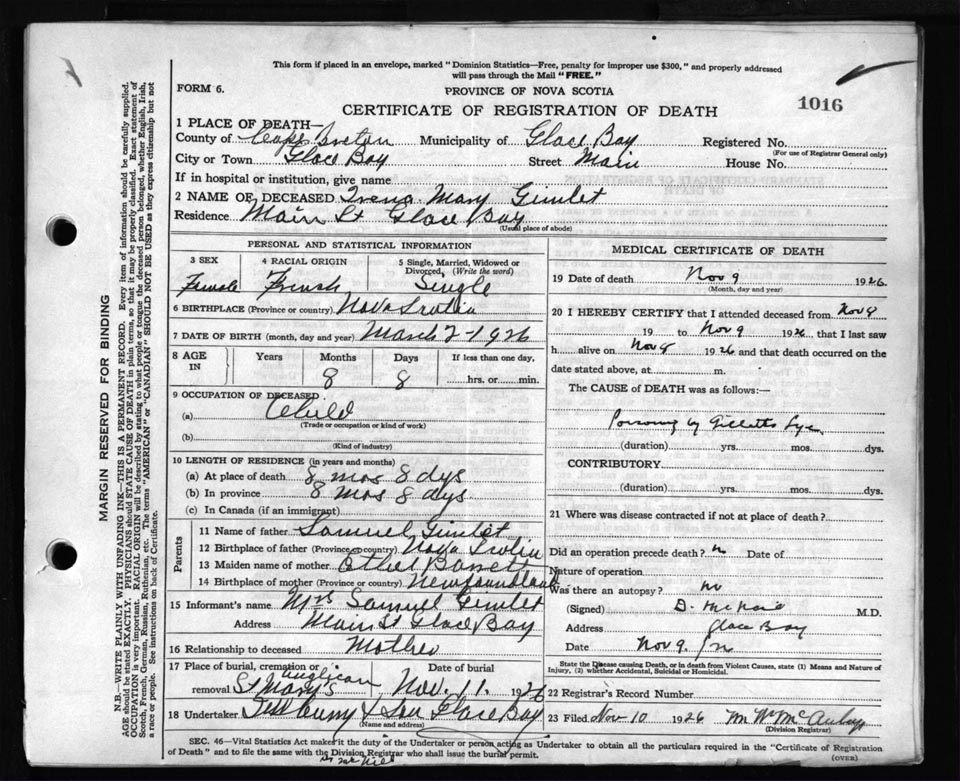 This form if placed in an envelope, marked "Dominion Statistics—Free, penalty for improper use $300," and properly addressed
will pass through the Mail "FREE."
FORM 6.
PROVINCE OF NOVA SCOTIA
CERTIFICATE OF REGISTRATION OF DEATH
1016
1 PLACE OF DEATH—
County of Cape Breton Municipality of Glace Bay Registered No.
(For use of Registrar General only)
City or Town Glace Bay Street Main House No.
If in hospital or institution, give name
2 NAME OF DECEASED Irena Mary Gimlet
Residence Main St Glace Bay
(Usual place of abode)
PERSONAL AND STATISTICAL INFORMATION
3 SEX 4 RACIAL ORIGIN 5 Single, Married, Widowed or
Divorced, (Write the word)
Female French Single
6 BIRTHPLACE (Province or country) Nova Scotia
7 DATE OF BIRTH (month, day and year) March 2-1926
8 AGE IN Years Months Days If less than one day,
8 8 hrs. or min.
9 OCCUPATION OF DECEASED
(a) Child
(Trade or occupation or kind of work)
(b)
(Kind of industry)
10 LENGTH OF RESIDENCE (in years and months)
(a) At place of death 8 mos 8 dys
(b) In province 8 mos 8 dys
(c) In Canada (if an immigrant)
Parents
11 Name of father Samuel Gimlet
12 Birthplace of father (Province or country) Nova Scotia
13 Maiden name of mother Ethel Barrett
14 Birthplace of mother (Province or country) Newfoundland
15 Informant's name Mrs Samuel Gimlet
Address Main St Glace Bay
16 Relationship to deceased Mother
17 Place of burial, cremation or Date of burial
removal St Mary's Anglican Nov. 11. 1926
18 Undertaker Curry & Son Glace Bay
(Name and address)
MEDICAL CERTIFICATE OF DEATH
19 Date of death Nov 9 1926
(Month, day and year)
20 I HEREBY CERTIFY that I attended deceased from Nov 8
19 to Nov 9 1926, that I last saw
h alive on Nov 8 1926 and that death occurred on the
date stated above, at m.
The CAUSE of DEATH was as follows:—
Poisoning by Gilletts Lye
(duration) yrs. mos. dys.
CONTRIBUTORY
(duration) yrs. mos. dys.
21 Where was disease contracted if not at place of death?
Did an operation precede death? n Date of
Nature of operation
Was there an autopsy? no
(Signed) M.D.
Address Glace Bay
Date Nov 9
State the Disease causing Death, or in death from Violent Causes, state (1) Means and Nature of
Injury, (2) whether Accidental, Suicidal or Homicidal.
22 Registrar's Record Number
23 Filed Nov 10 1926
(Division Registrar)
SEC. 46—Vital Statistics Act makes it the duty of the Undertaker or person acting as Undertaker to obtain all the particulars required in the "Certificate of Registration
of Death" and to file the same with the Division Registrar who shall issue the burial permit.
(OVER)
MARGIN RESERVED FOR BINDING
N.B.—WRITE PLAINLY WITH UNFADING INK—THIS IS A PERMANENT RECORD. Every item of information should be carefully supplied.
AGE should be stated EXACTLY. PHYSICIANS should STATE CAUSE OF DEATH in plain terms, so that it may be properly classified. Exact statement of
OCCUPATION is very important. RACIAL ORIGIN will be described by stating to what people or tongue the deceased person belonged, whether English, Irish,
Scotch, French, German, Russian, Ruthenian, etc. The terms "AMERICAN" or "CANADIAN" SHOULD NOT BE USED as they express citizenship but not
a race or people. See instructions on back of Certificate.